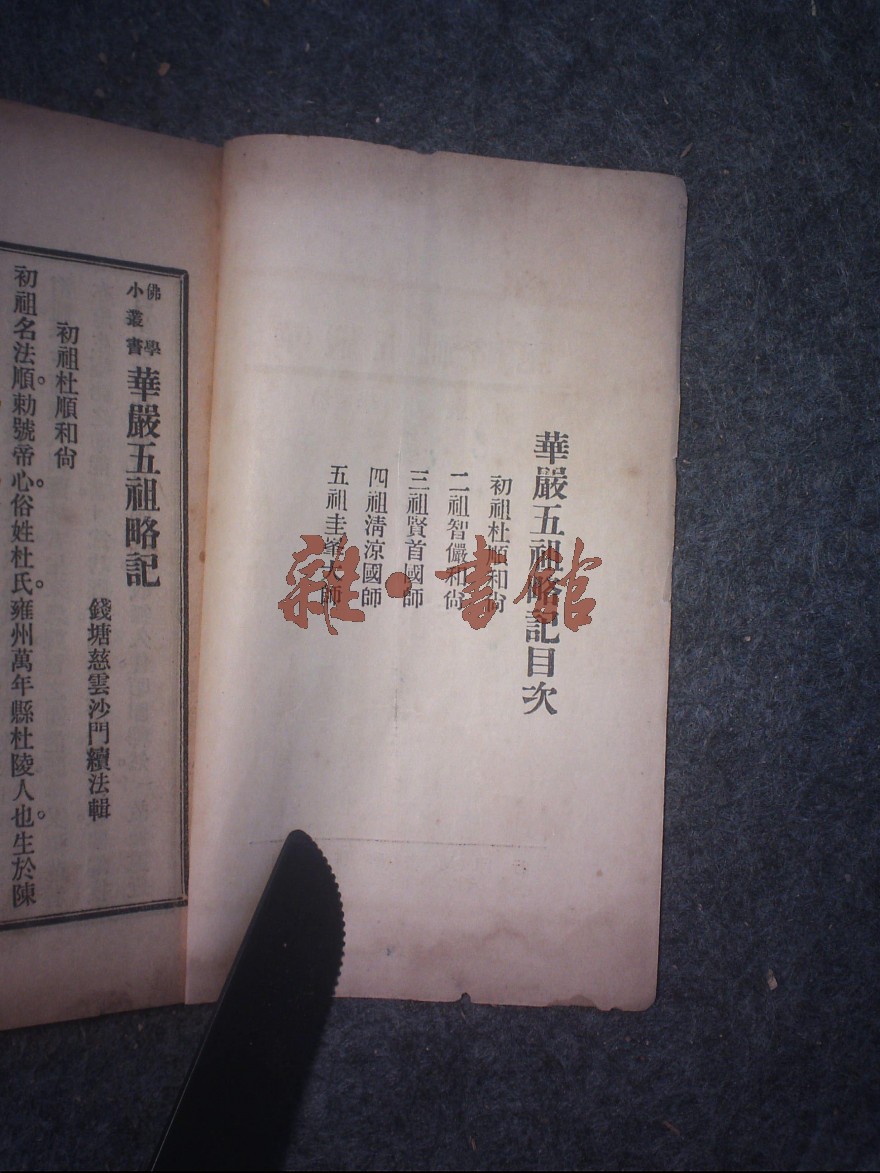 華嚴五祖略記目次
初祖杜順和尙
二祖智儼和尙
三祖賢首國師
四祖淸涼國師
五祖圭峯大師
雜·書館
佛學小叢書 華嚴五祖略記
錢塘慈雲沙門續法輯
初祖杜順和尙
初祖名法順。勅號帝心。俗姓杜氏。雍州萬年縣杜陵人也。生於陳